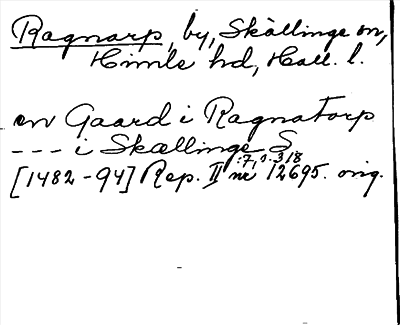 Ragnarp, by, Skällinge sn,
Himle hd, Hall. l.
en Gaard i Ragnatorp
--- i Skællinge S.
:7, s. 318
[1482-94] Rep. II nr 12695. orig.